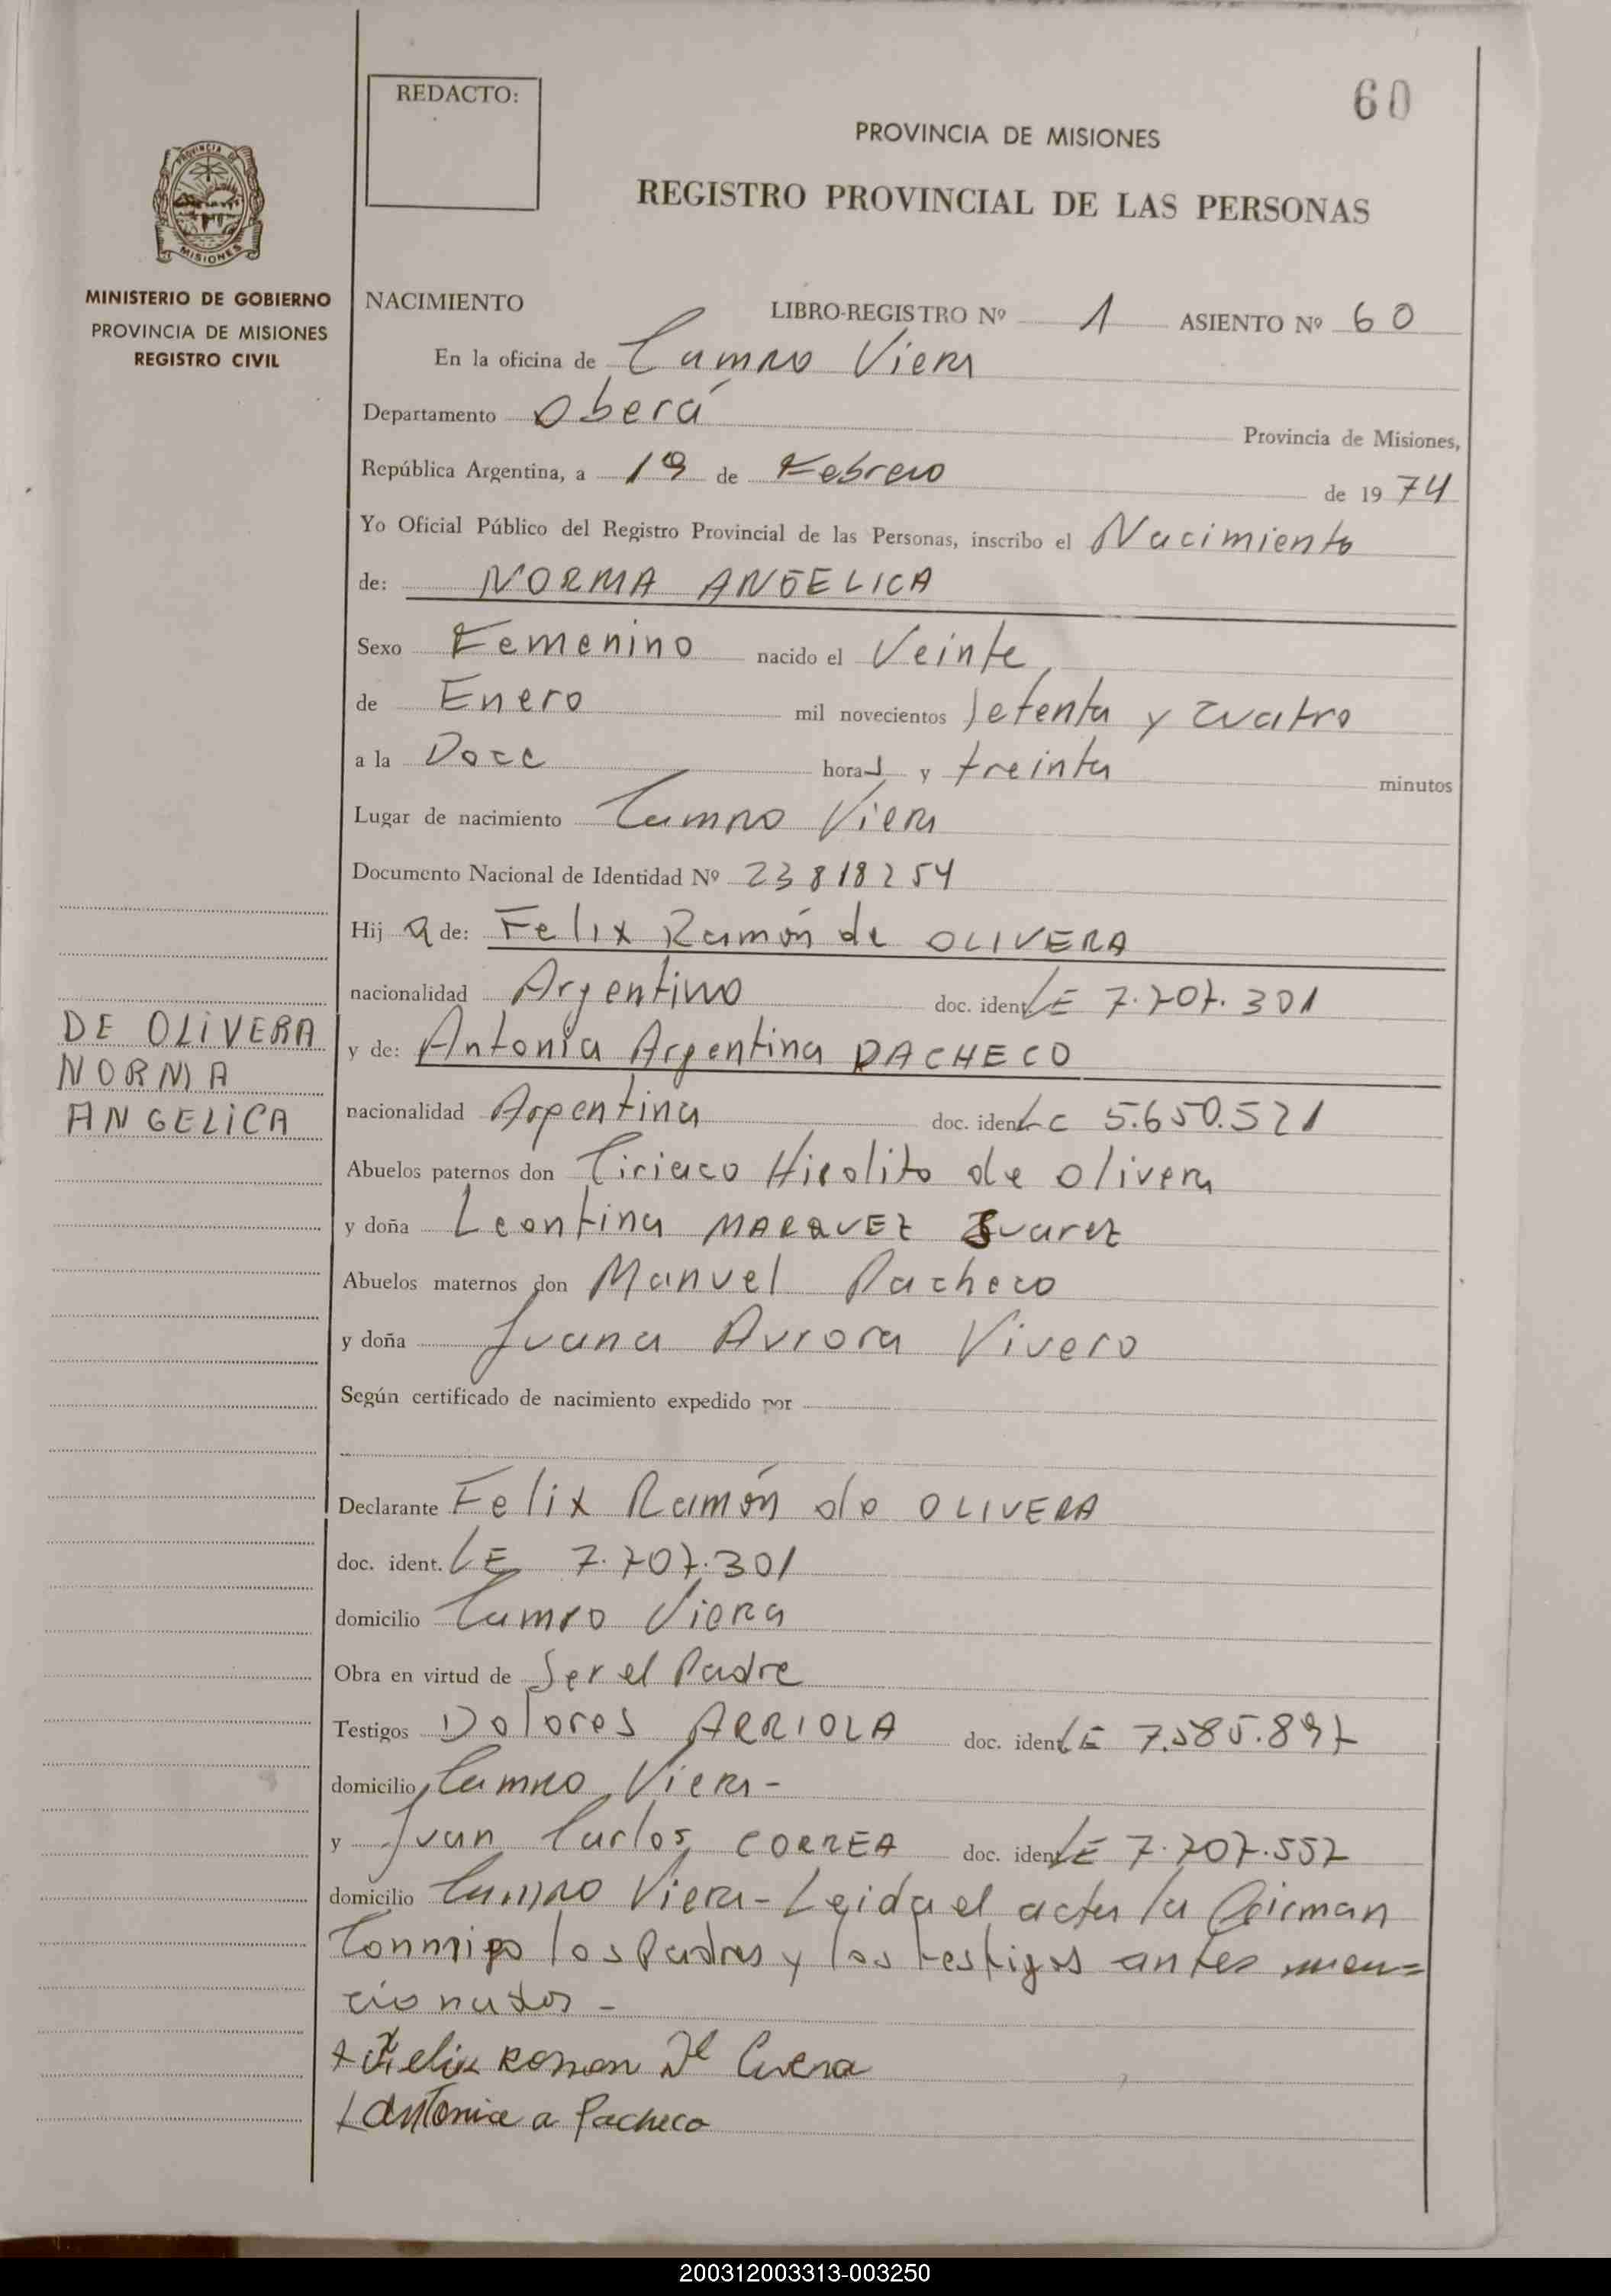 REDACTO:
60
PROVINCIA DE MISIONES
REGISTRO PROVINCIAL DE LAS PERSONAS
PROVINCIA DE
MISIONES
MINISTERIO DE GOBIERNO
PROVINCIA DE MISIONES
REGISTRO CIVIL
NACIMIENTO LIBRO-REGISTRO Nº 1 ASIENTO Nº 60
En la oficina de Campo Viera
Departamento Oberá Provincia de Misiones,
República Argentina, a 19 de Febrero de 1974
Yo Oficial Público del Registro Provincial de las Personas, inscribo el Nacimiento
de: NORMA ANGELICA
Sexo Femenino nacido el Veinte,
de Enero mil novecientos setenta y cuatro
a la Doce horas y treinta minutos
Lugar de nacimiento Campo Viera
Documento Nacional de Identidad Nº 23818254
Hija de: Felix Ramón de OLIVERA
nacionalidad Argentino doc. ident. LE 7.707.301
DE OLIVERA
NORMA
ANGELICA
y de: Antonia Argentina PACHECO
nacionalidad Argentina doc. ident. LC 5.650.521
Abuelos paternos don Ciriaco Hipolito de Olivera
y doña Leontina MARQUEZ Suarez
Abuelos maternos don Manuel Pacheco
y doña Juana Aurora Vivero
Según certificado de nacimiento expedido por
Declarante Felix Ramón de OLIVERA
doc. ident. LE 7.707.301
domicilio Campo Viera
Obra en virtud de Ser el Padre
Testigos Dolores ARRIOLA doc. ident. LE 7.585.897
domicilio Campo Viera-
y Juan Carlos CORREA doc. ident. LE 7.707.557
domicilio Campo Viera - Leida el acta la firman
Conmigo los Padres y los testigos antes men=
cionados -
Felix Ramon De
Antonia a Pacheco
200312003313-003250